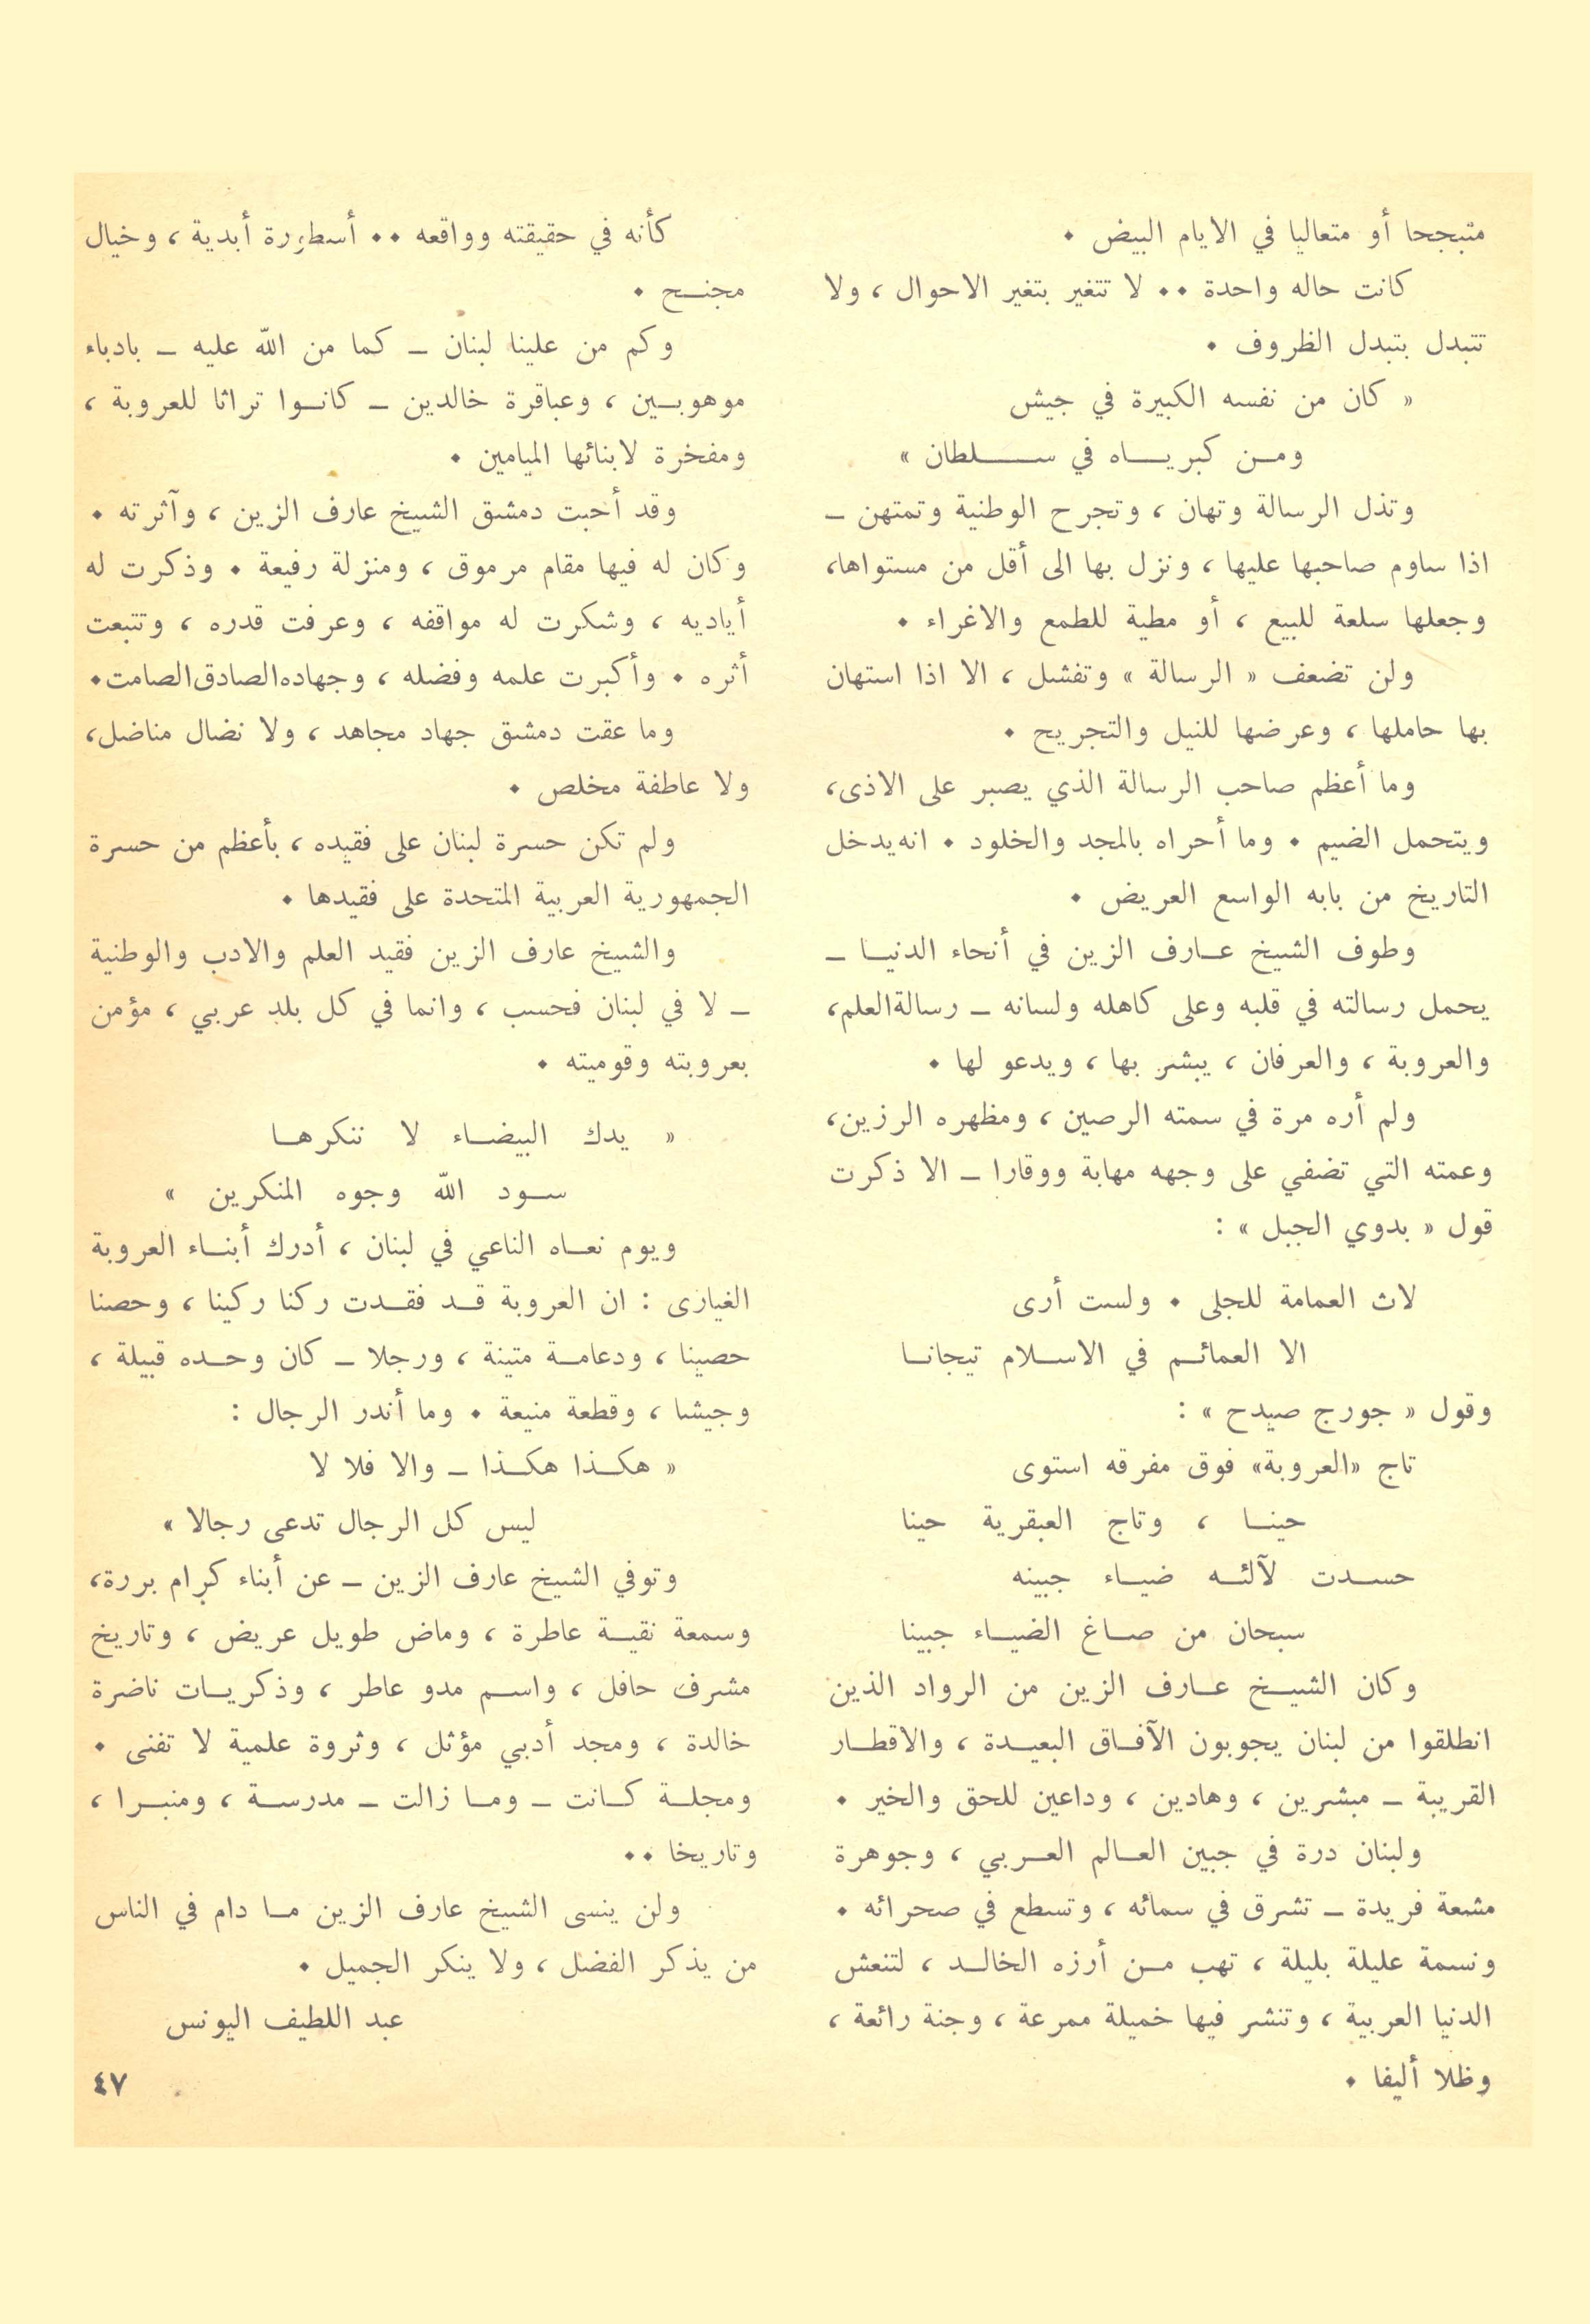 متبجحا أو متعاليا في الايام البيض .
كانت حاله واحدة .. لا تتغير بتغير الاحوال ، ولا
تتبدل بتبدل الظروف .
« كان من نفسه الكبيرة في جيش
ومن كبرياه في سلطان »
وتذل الرسالة وتهان ، وتجرح الوطنية وتمتهن –
اذا ساوم صاحبها عليها ، ونزل بها الى أقل من مستواها،
وجعلها سلعة للبيع ، أو مطية للطمع والاغراء .
ولن تضعف « الرسالة » وتفشل ، الا اذا استهان
بها حاملها ، وعرضها للنيل والتجريح .
وما أعظم صاحب الرسالة الذي يصبر على الاذى،
ويتحمل الضيم . وما أحراه بالمجد والخلود . انه يدخل
التاريخ من بابه الواسع العريض .
وطوف الشيخ عارف الزين في أنحاء الدنيا –
يحمل رسالته في قلبه وعلى كاهله ولسانه – رسالة العلم،
والعروبة ، والعرفان ، يبشر بها ، ويدعو لها .
ولم أره مرة في سمته الرصين ، ومظهره الرزين،
وعمته التي تضفي على وجهه مهابة ووقارا – الا ذكرت
قول « بدوي الجبل » :
لاث العمامة للجلى . ولست أرى
الا العمائم في الاسلام تيجانا
وقول « جورج صيدح » :
تاج «العروبة» فوق مفرقه استوى
حينا ، وتاج العبقرية حينا
حسدت لآلئه ضياء جبينه
سبحان من صاغ الضياء جبينا
وكان الشيخ عارف الزين من الرواد الذين
انطلقوا من لبنان يجوبون الآفاق البعيدة ، والاقطار
القريبة – مبشرين ، وهادين ، وداعين للحق والخير .
ولبنان درة في جبين العالم العربي ، وجوهرة
مشعة فريدة – تشرق في سمائه ، وتسطع في صحرائه .
ونسمة عليلة بليلة ، تهب من أرزه الخالد ، لتنعش
الدنيا العربية ، وتنشر فيها خميلة ممرعة ، وجنة رائعة ،
وظلا أليفا .
كأنه في حقيقته وواقعه .. أسطورة أبدية ، وخيال
مجنح .
وكم من علينا لبنان – كما من الله عليه – بادباء
موهوبين ، وعباقرة خالدين – كانوا تراثا للعروبة ،
ومفخرة لابنائها الميامين .
وقد أحبت دمشق الشيخ عارف الزين ، وآثرته .
وكان له فيها مقام مرموق ، ومنزلة رفيعة . وذكرت له
أياديه ، وشكرت له مواقفه ، وعرفت قدره ، وتتبعت
أثره . وأكبرت علمه وفضله ، وجهاده الصادق الصامت.
وما عقت دمشق جهاد مجاهد ، ولا نضال مناضل،
ولا عاطفة مخلص .
ولم تكن حسرة لبنان على فقيده ، بأعظم من حسرة
الجمهورية العربية المتحدة على فقيدها .
والشيخ عارف الزين فقيد العلم والادب والوطنية
– لا في لبنان فحسب ، وانما في كل بلد عربي ، مؤمن
بعروبته وقوميته .
« يدك البيضاء لا ننكرها
سود الله وجوه المنكرين »
ويوم نعاه الناعي في لبنان ، أدرك أبناء العروبة
الغيارى : ان العروبة قد فقدت ركنا ركينا ، وحصنا
حصينا ، ودعامة متينة ، ورجلا – كان وحده قبيلة ،
وجيشا ، وقطعة منيعة . وما أندر الرجال :
« هكذا هكذا – والا فلا لا
ليس كل الرجال تدعى رجالا »
وتوفي الشيخ عارف الزين – عن أبناء كرام بررة،
وسمعة نقية عاطرة ، وماض طويل عريض ، وتاريخ
مشرف حافل ، واسم مدو عاطر ، وذكريات ناضرة
خالدة ، ومجد أدبي مؤثل ، وثروة علمية لا تفنى .
ومجلة كانت – وما زالت – مدرسة ، ومنبرا ،
وتاريخا ..
ولن ينسى الشيخ عارف الزين ما دام في الناس
من يذكر الفضل ، ولا ينكر الجميل .
عبد اللطيف اليونس
٤٧